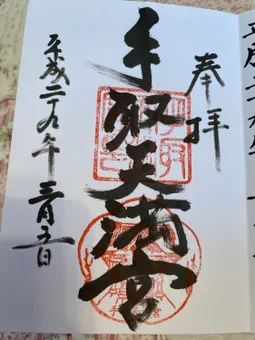 奉拝
手取天満宮
平成二十九年三月五日